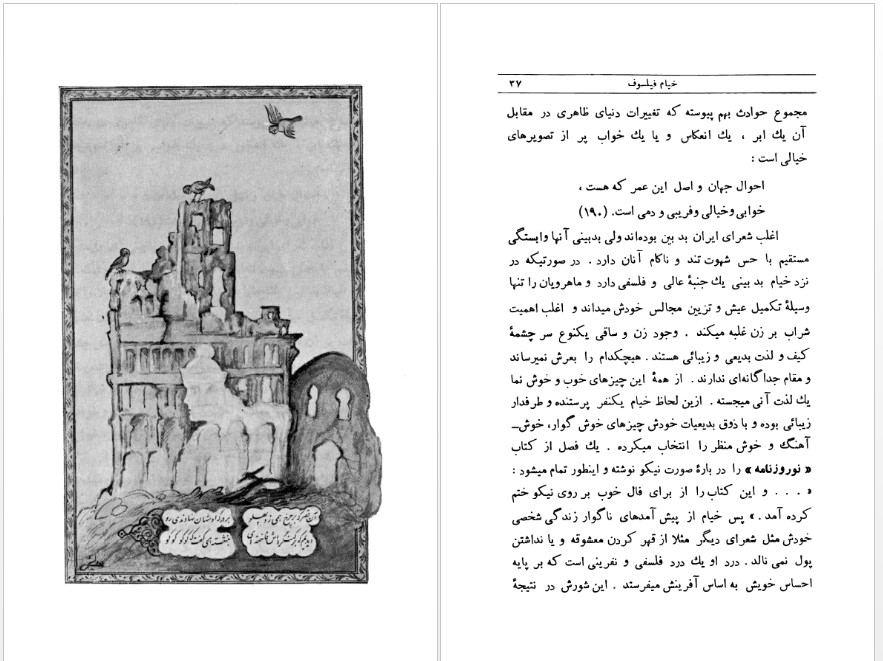 آن قصر که بر چرخ همی زد پهلو
بر درگه او شهان نهادندی رو
دیدیم که بر کنگره‌اش فاخته‌ای
بنشسته همی گفت که کوکو کوکو
خیام فیلسوف
۳۷
مجموع حوادث بهم پیوسته که تغییرات دنیای ظاهری در مقابل
آن یك ابر ، یك انعکاس و یا یك خواب پر از تصویرهای
خیالی است :
احوال جهان و اصل این عمر که هست ،
خوابی و خیالی و فریبی و دمی است. (۱۹۰)
اغلب شعرای ایران بد بین بوده‌اند ولی بدبینی آنها وابستگی
مستقیم با حس شهوت تند و ناکام آنان دارد . در صورتیکه در
نزد خیام بد بینی یك جنبهٔ عالی و فلسفی دارد و ماهرویان را تنها
وسیلهٔ تکمیل عیش و تزیین مجالس خودش میداند و اغلب اهمیت
شراب بر زن غلبه میکند . وجود زن و ساقی یکنوع سر چشمهٔ
کیف و لذت بدیعی و زیبائی هستند . هیچکدام را بعرش نمیرساند
و مقام جدا گانه‌ای ندارند . از همهٔ این چیزهای خوب و خوش نما
یك لذت آنی میجسته . ازین لحاظ خیام یکنفر پرستنده و طرفدار
زیبائی بوده و با ذوق بدیعیات خودش چیزهای خوش گوار، خوش_
آهنگ و خوش منظر را انتخاب میکرده . یك فصل از کتاب
« نوروزنامه » را در بارهٔ صورت نیکو نوشته و اینطور تمام میشود :
« . . . و این کتاب را از برای فال خوب بر روی نیکو ختم
کرده آمد . » پس خیام از پیش آمدهای ناگوار زندگی شخصی
خودش مثل شعرای دیگر مثلا از قهر کردن معشوقه و یا نداشتن
پول نمی نالد . درد او یك درد فلسفی و نفرینی است که بر پایه
احساس خویش به اساس آفرینش میفرستد . این شورش در نتیجهٔ